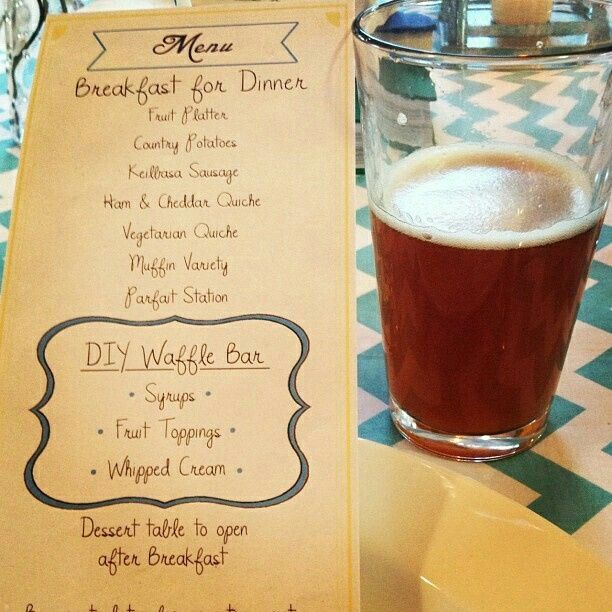 Menu
Breakfast for Dinner
Fruit Platter
Country Potatoes
Keilbasa Sausage
Ham & Cheddar Quiche
Vegetarian Quiche
Muffin Variety
Parfait Station
DIY Waffle Bar
• Syrups •
• Fruit Toppings •
• Whipped Cream •
Dessert table to open
after Breakfast